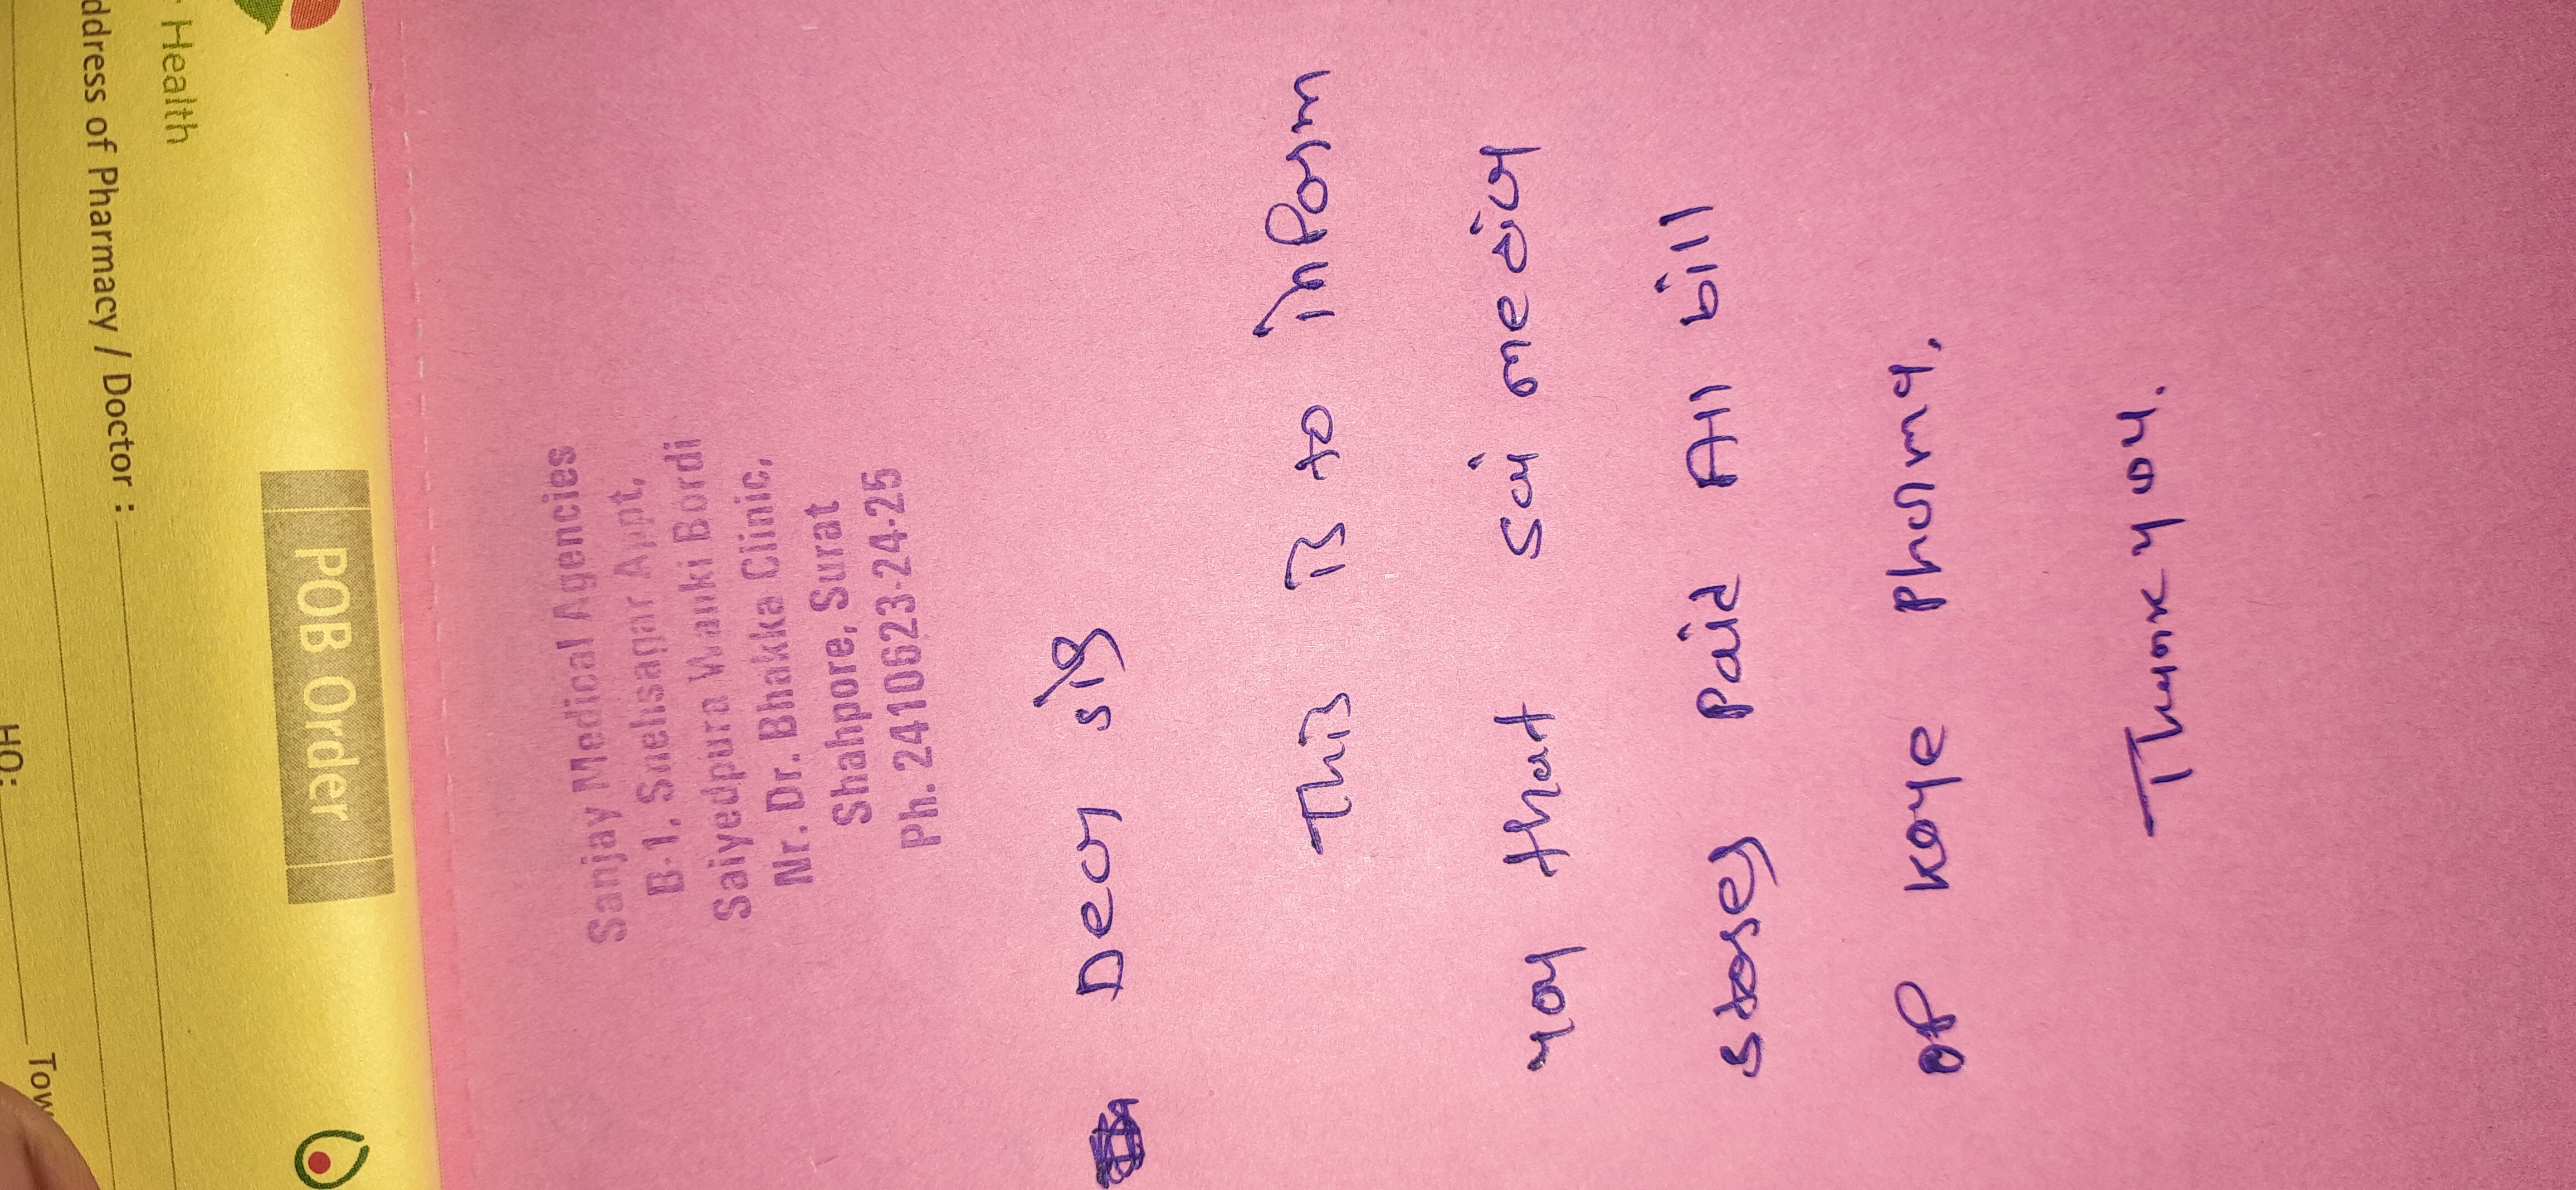 Health
ddress of Pharmacy / Doctor :
HO:
Tow
POB Order
Sanjay Medical Agencies
B-1, Snehsagar Appt,
Saiyedpura Wanki Bordi
Nr. Dr. Bhakka Clinic,
Shahpore, Surat
Ph. 2410623-24-25
Dear sir
This is to inform
you that Sai medical
stores paid All bill
of Kaye Pharma.
Thank you.